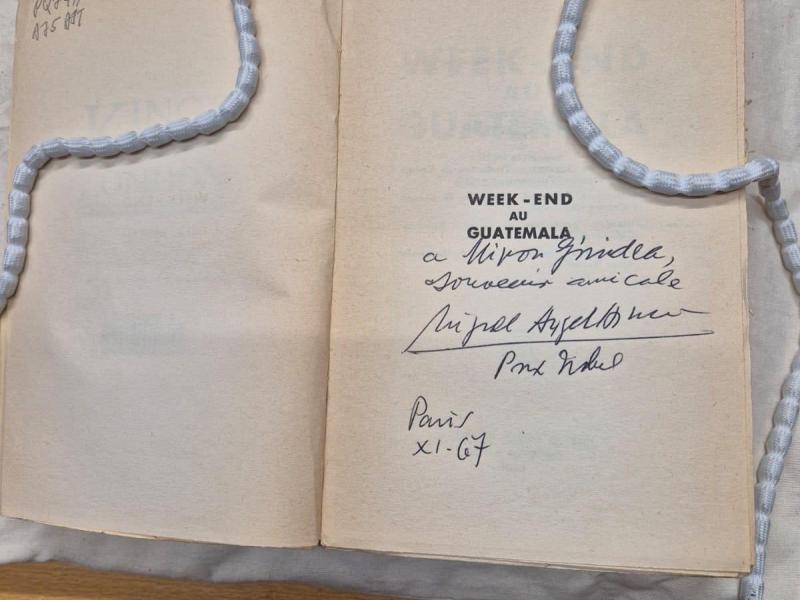 PQ7499
A75 A2T
WEEK-END
AU
GUATEMALA
a Miron Grindea,
souvenir amicale
Miguel Angel Asturias
Prix Nobel
Paris
XI-67